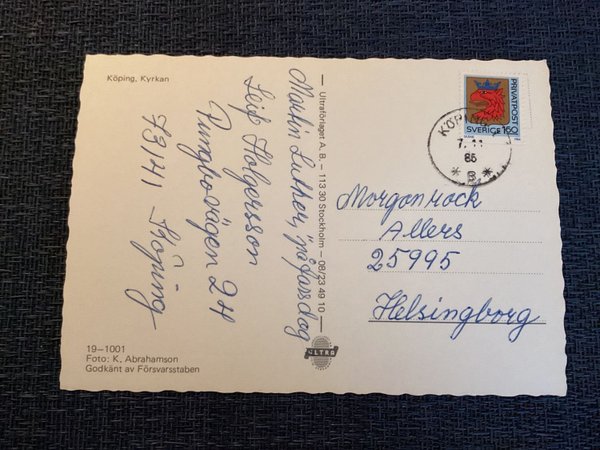 Köping, Kyrkan
Martin Luther, på färsdag
Leif Holgersson
Pungbovägen 2H
73141 Köping
Ultraförlaget A. B. – 113 30 Stockholm – 08/23 49 10
PRIVATPOST
SVERIGE 160
KÖPING
7. 11
86
* B *
Morgonrock
Allers
25995
Helsingborg
ULTRA
19–1001
Foto: K. Abrahamson
Godkänt av Försvarsstaben